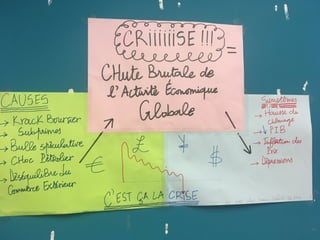 CRiiiiiiSE !!! =
CHute Brutale de
l'Activité Économique
Globale
CAUSES
→ Krack Boursier
→ Subprimes
→ Bulle spéculative
→ CHoc Pétrolier
→ Déséquilibre du
Commerce Extérieur
€
£
¥
$
C'EST ÇA LA CRISE
Symptômes
→ Hausse du
chômage
→ ↓ PIB
→ Inflation des
Prix
→ Dépressions